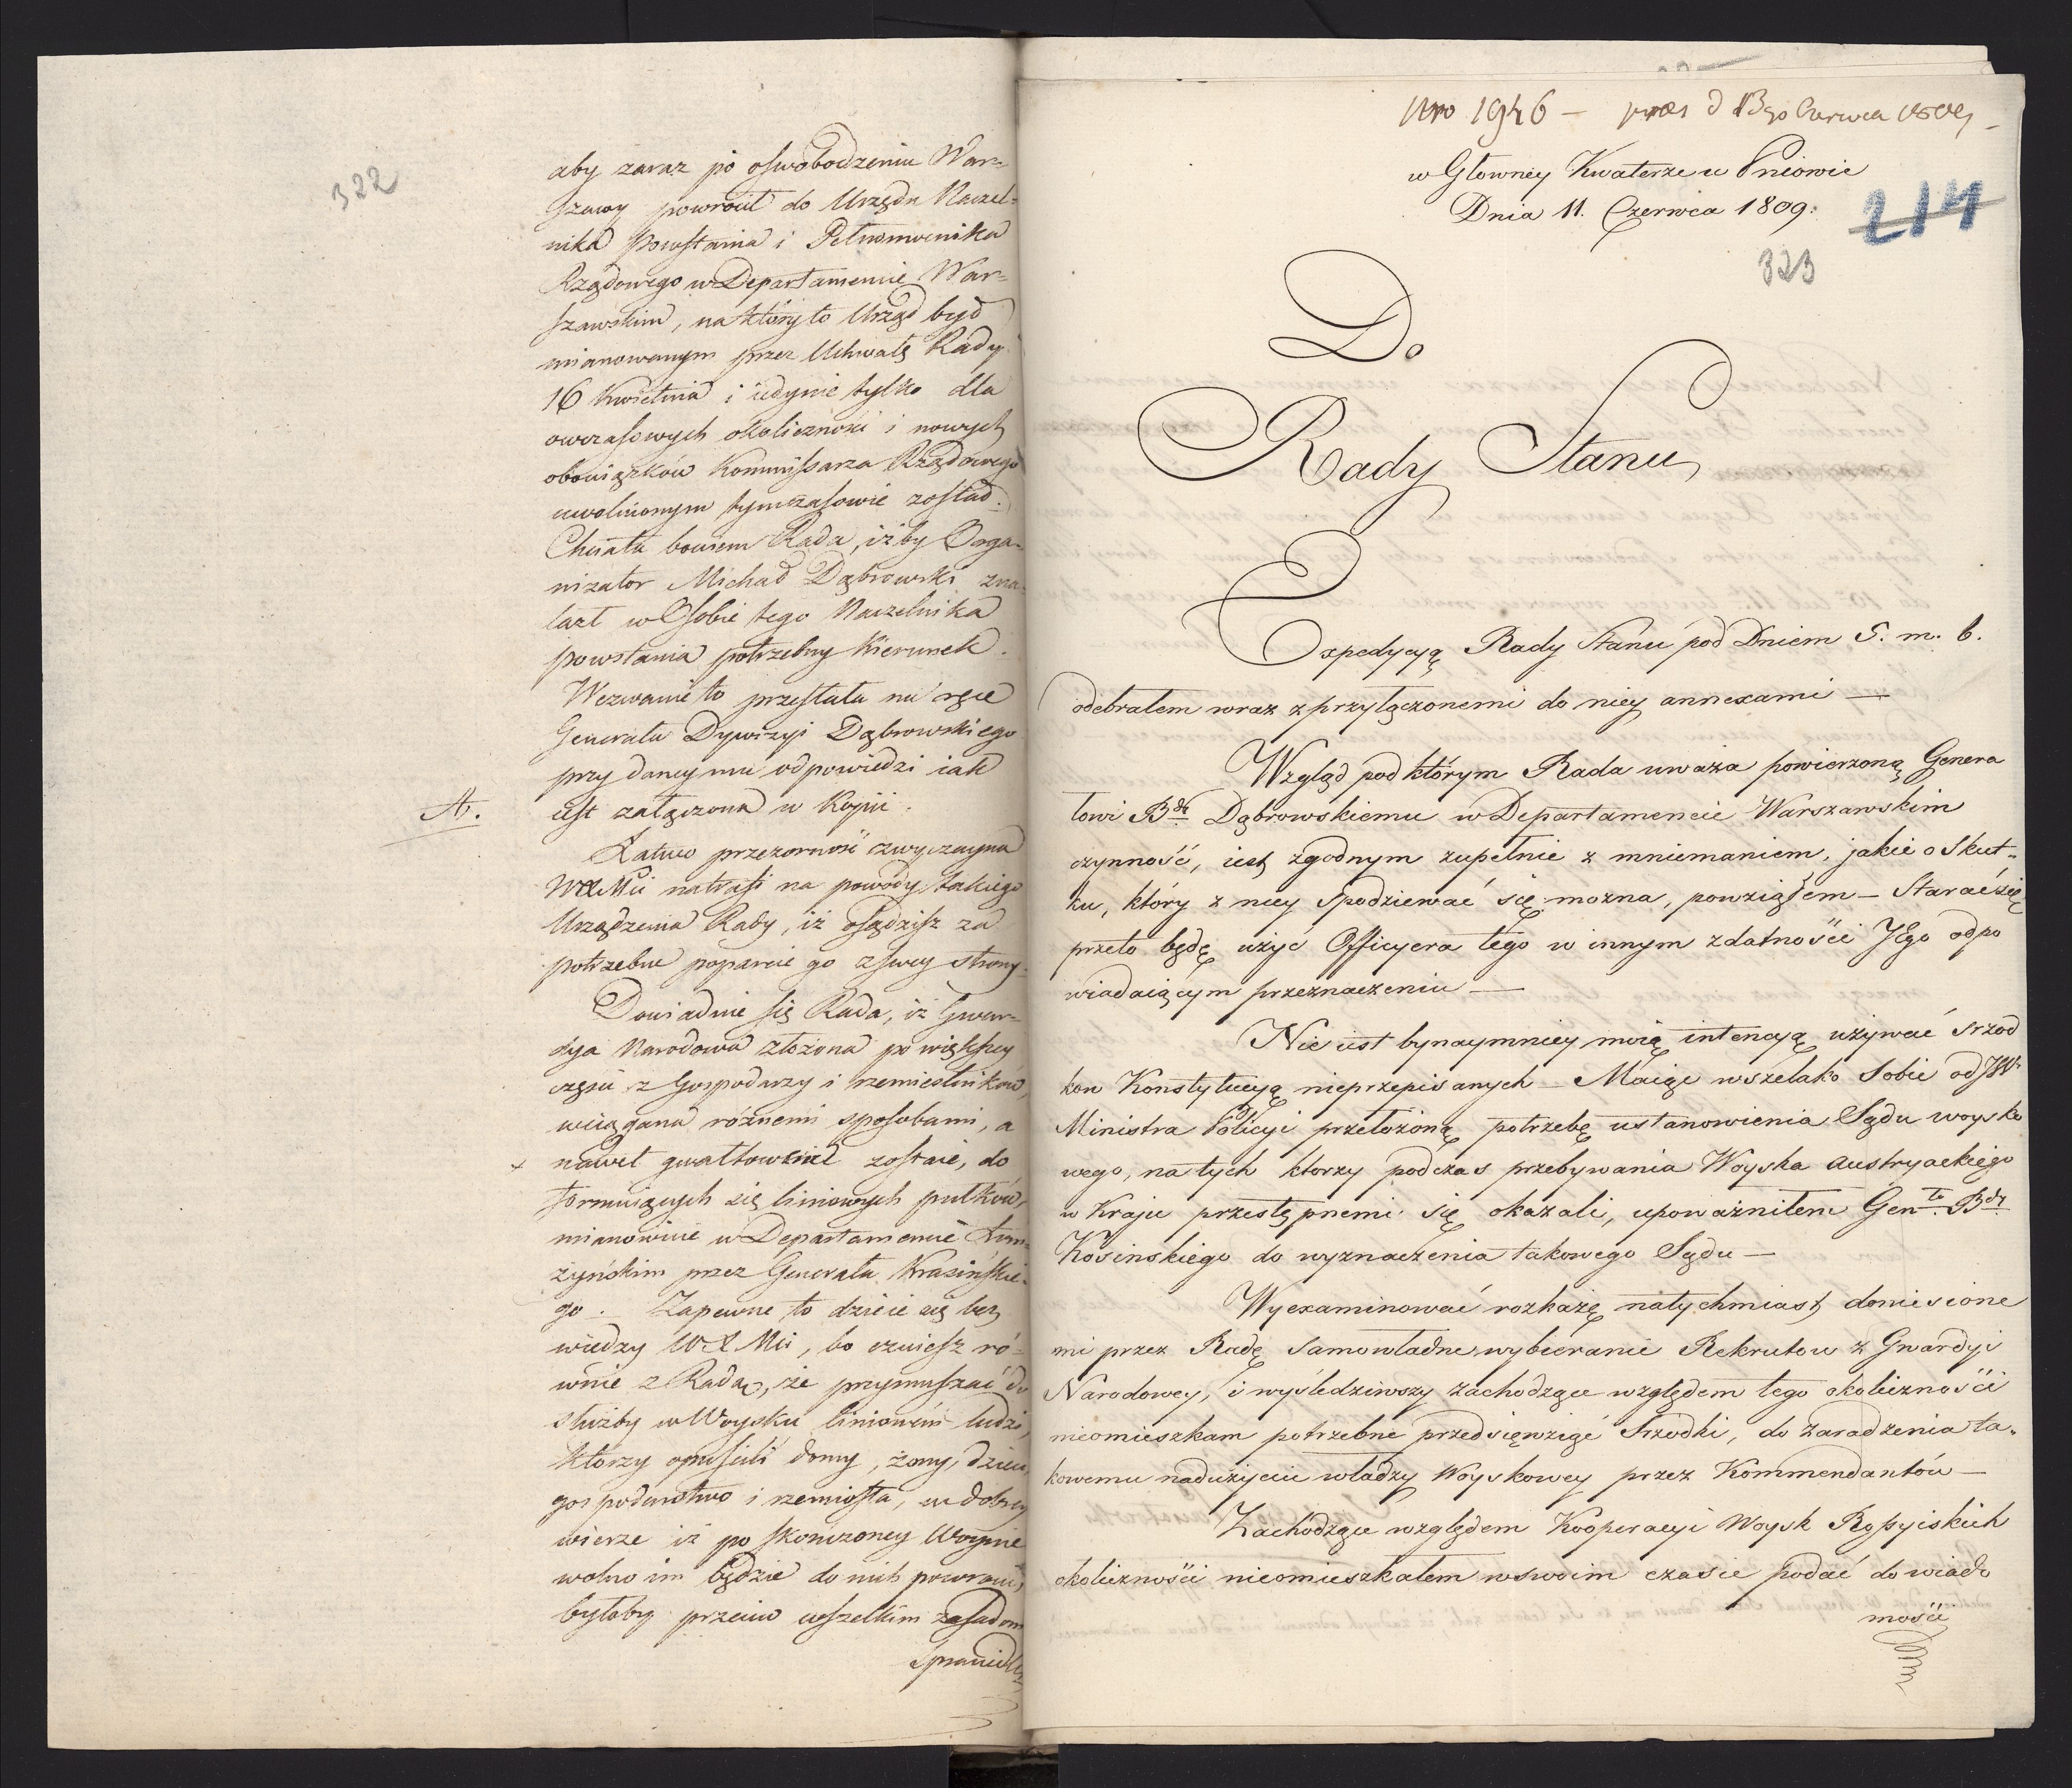 322
aby zaraz po oswobodzeniu War-
szawy powrócił do Urzędu Naczel-
nika Powstania i Pełnomocnika
Rządowego w Departamencie War-
szawskim, na który to Urząd był
mianowanym przez Uchwałę Rady
16 Kwietnia i iedynie tylko dla
owczasowych okoliczności i nowych
obowiązków Kommissarza Rządowego
uwolnionym tymczasowie został.
Chciała bowiem Rada, iżby Orga-
nizator Michał Dąbrowski zna-
lazł w Osobie tego Naczelnika
powstania potrzebny Kierunek.
Wezwanie to przesłała na ręce
Generała Dywizyi Dąbrowskiego
przy daney mu odpowiedzi iak
A. iest załączona w Kopii.
Łatwo przezorność zwyczayna
WXMci natrafi na powody takiego
Urządzenia Rady, iż osądzisz za
potrzebne poparcie go z swey strony.
Dowiaduie się Rada, iż Gwar-
dya Narodowa złożona po większey
części z Gospodarzy i rzemieślników,
wciągana różnemi sposobami, a
nawet gwałtownie zostaie, do
formuiących się liniowych pułków,
mianowicie w Departamencie Łom-
żyńskim przez Generała Krasińskie-
go. Zapewne to dzieie się bez
wiedzy WXMci, bo czuiesz ró-
wnie z Radą, że przymuszać do
służby w Woysku liniowem ludzi,
którzy opuścili domy, żony, dzieci,
gospodarstwo i rzemiosła, w dobrey
wierze iż po skończoney Woynie
wolno im będzie do nich powrócić,
byłoby przeciw wszelkim zasadom
Sprawiedli
Nro 1946 – praes d 13go Czerwca 1809
w Głowney Kwaterze w Pniowie
Dnia 11. Czerwca 1809.
214
323
Do
Rady Stanu
Expedycyą Rady Stanu pod Dniem 5. m. b.
odebrałem wraz z przyłączonemi do niey annexami —
Wzgląd pod którym Rada uważa powierzoną Genera
łowi Bdy Dąbrowskiemu w Departamencie Warszawskim
czynność, iest zgodnym zupełnie z mniemaniem, jakie o Skut-
ku, który z niey Spodziewać się można, powziąłem — Starać się
przeto będę użyć Officyera tego w innym zdatności JEgo odpo
wiadaiącym przeznaczeniu —
Nie iest bynaymniey moią intencyą używać Srzod
kow Konstytucyą nieprzepisanych — Maiąc wszelako Sobie od JW.
Ministra Policyi przełożoną potrzebę ustanowienia Sądu woysko
wego, na tych ktorzy podczas przebywania Woyska austryackiego
w Kraju przestępnemi się okazali, upoważniłem Gen.ła Bdy
Kosinskiego do wyznaczenia takowego Sądu —
Wyexaminować rozkażę natychmiast doniesione
mi przez Radę Samowładne wybieranie Rekrutow z Gwardyi
Narodowey, i wyśledziwszy zachodzące względem tego okoliczności
nieomieszkam potrzebne przedsięwziąć Srzodki, do zaradzenia ta-
kowemu nadużyciu władzy Woyskowey przez Kommendantów —
Zachodzące względem Kooperacyi Woysk Rossyiskich
okoliczności nieomieszkałem w swoim czasie podać do wiado
mości